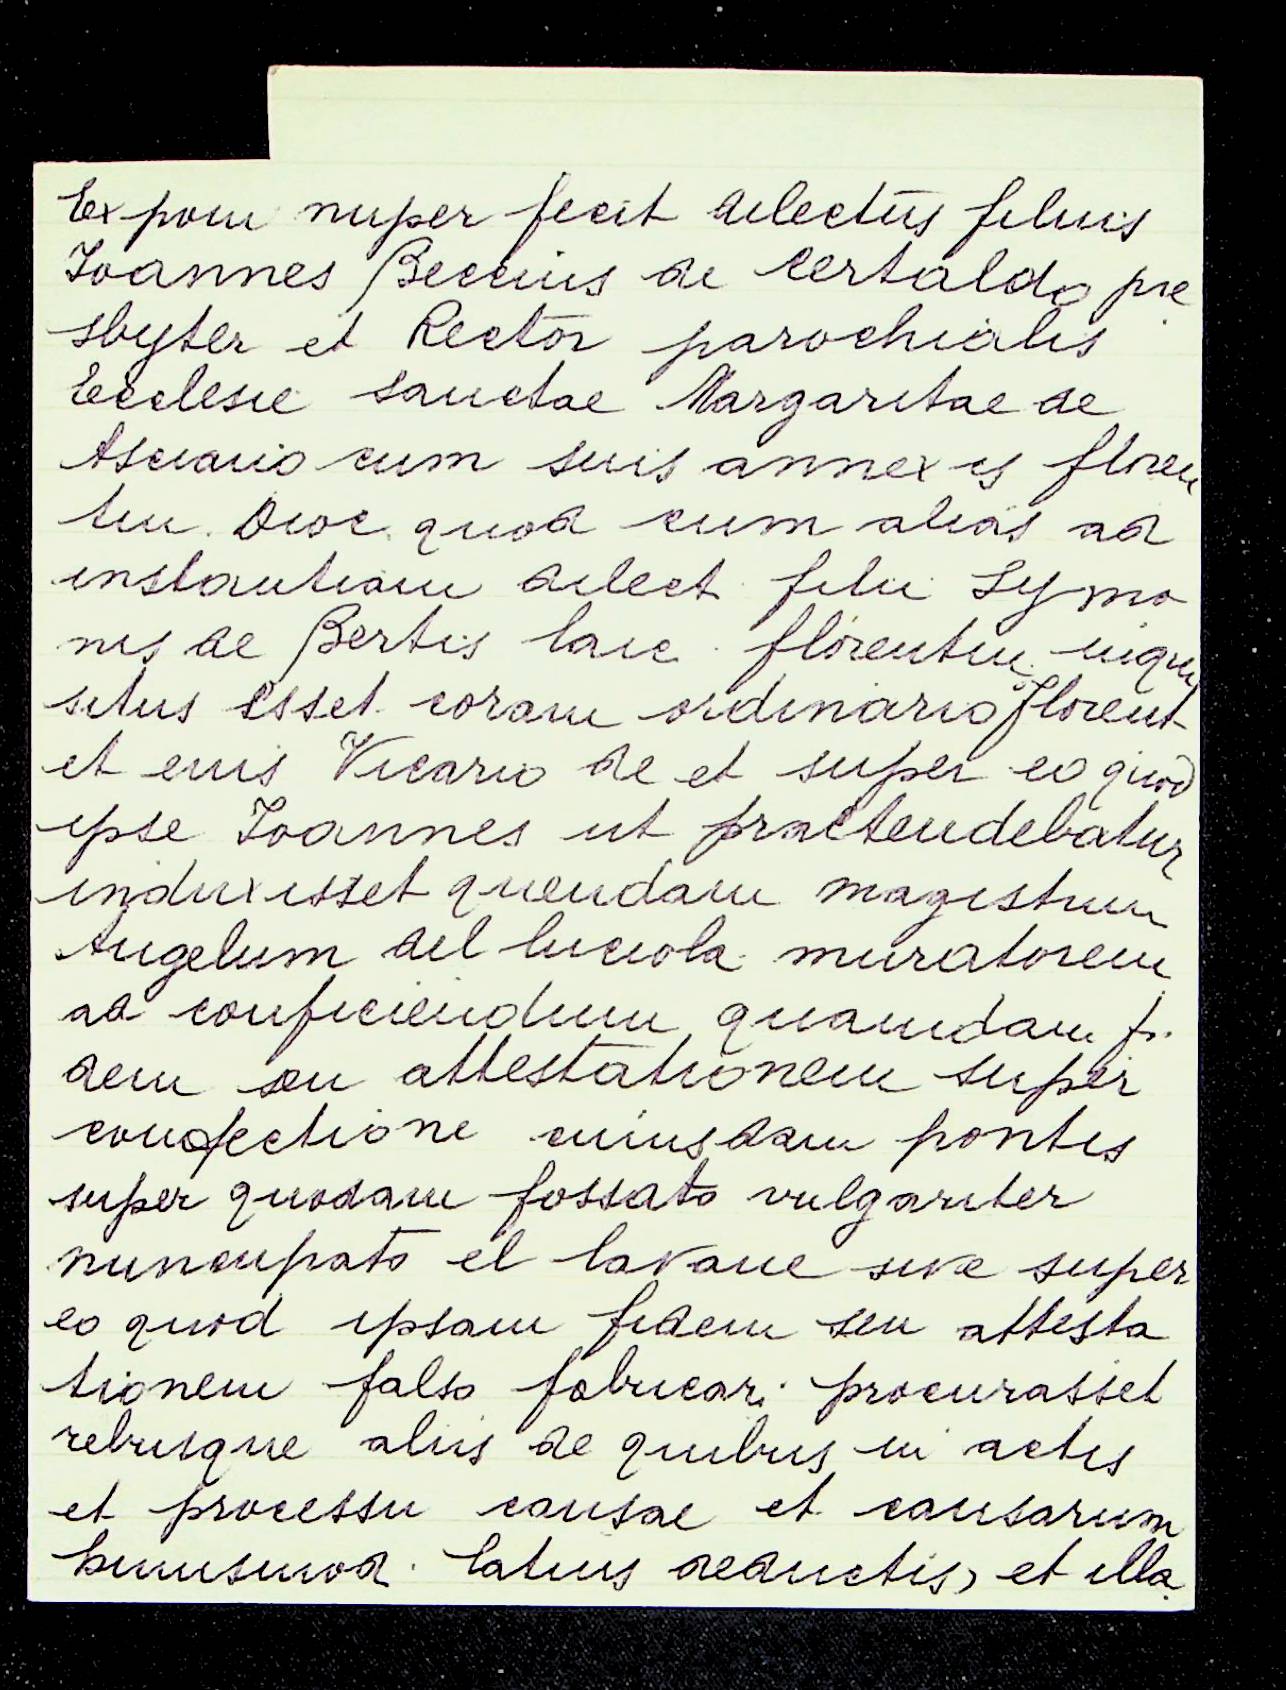 Exponi nuper fecit dilectus filius
Ioannes Beccius de Certaldo pre
sbyter et Rector parochialis
Ecclesie sanctae Margaritae de
Asciano cum suis annexis floren
tin. Dioc. quod cum alias ad
instantiam dilect. filii Symo
nis de Bertis laic. florentin. inqui
situs esset coram ordinario florent
et eius Vicario de et super eo quod
ipse Ioannes ut praetendebatur
induxisset quendam magistrum
Angelum del lucciola muratorem
ad conficiendum quamdam fi
dem seu attestationem super
confectione cuiusdam pontis
super quodam fossato vulgariter
nuncupato el lavane sive super
eo quod ipsam fidem seu attesta
tionem falso fabricari procurasset
rebusque aliis de quibus in actis
et processu causae et causarum
huiusmod. latius deductis, et illa